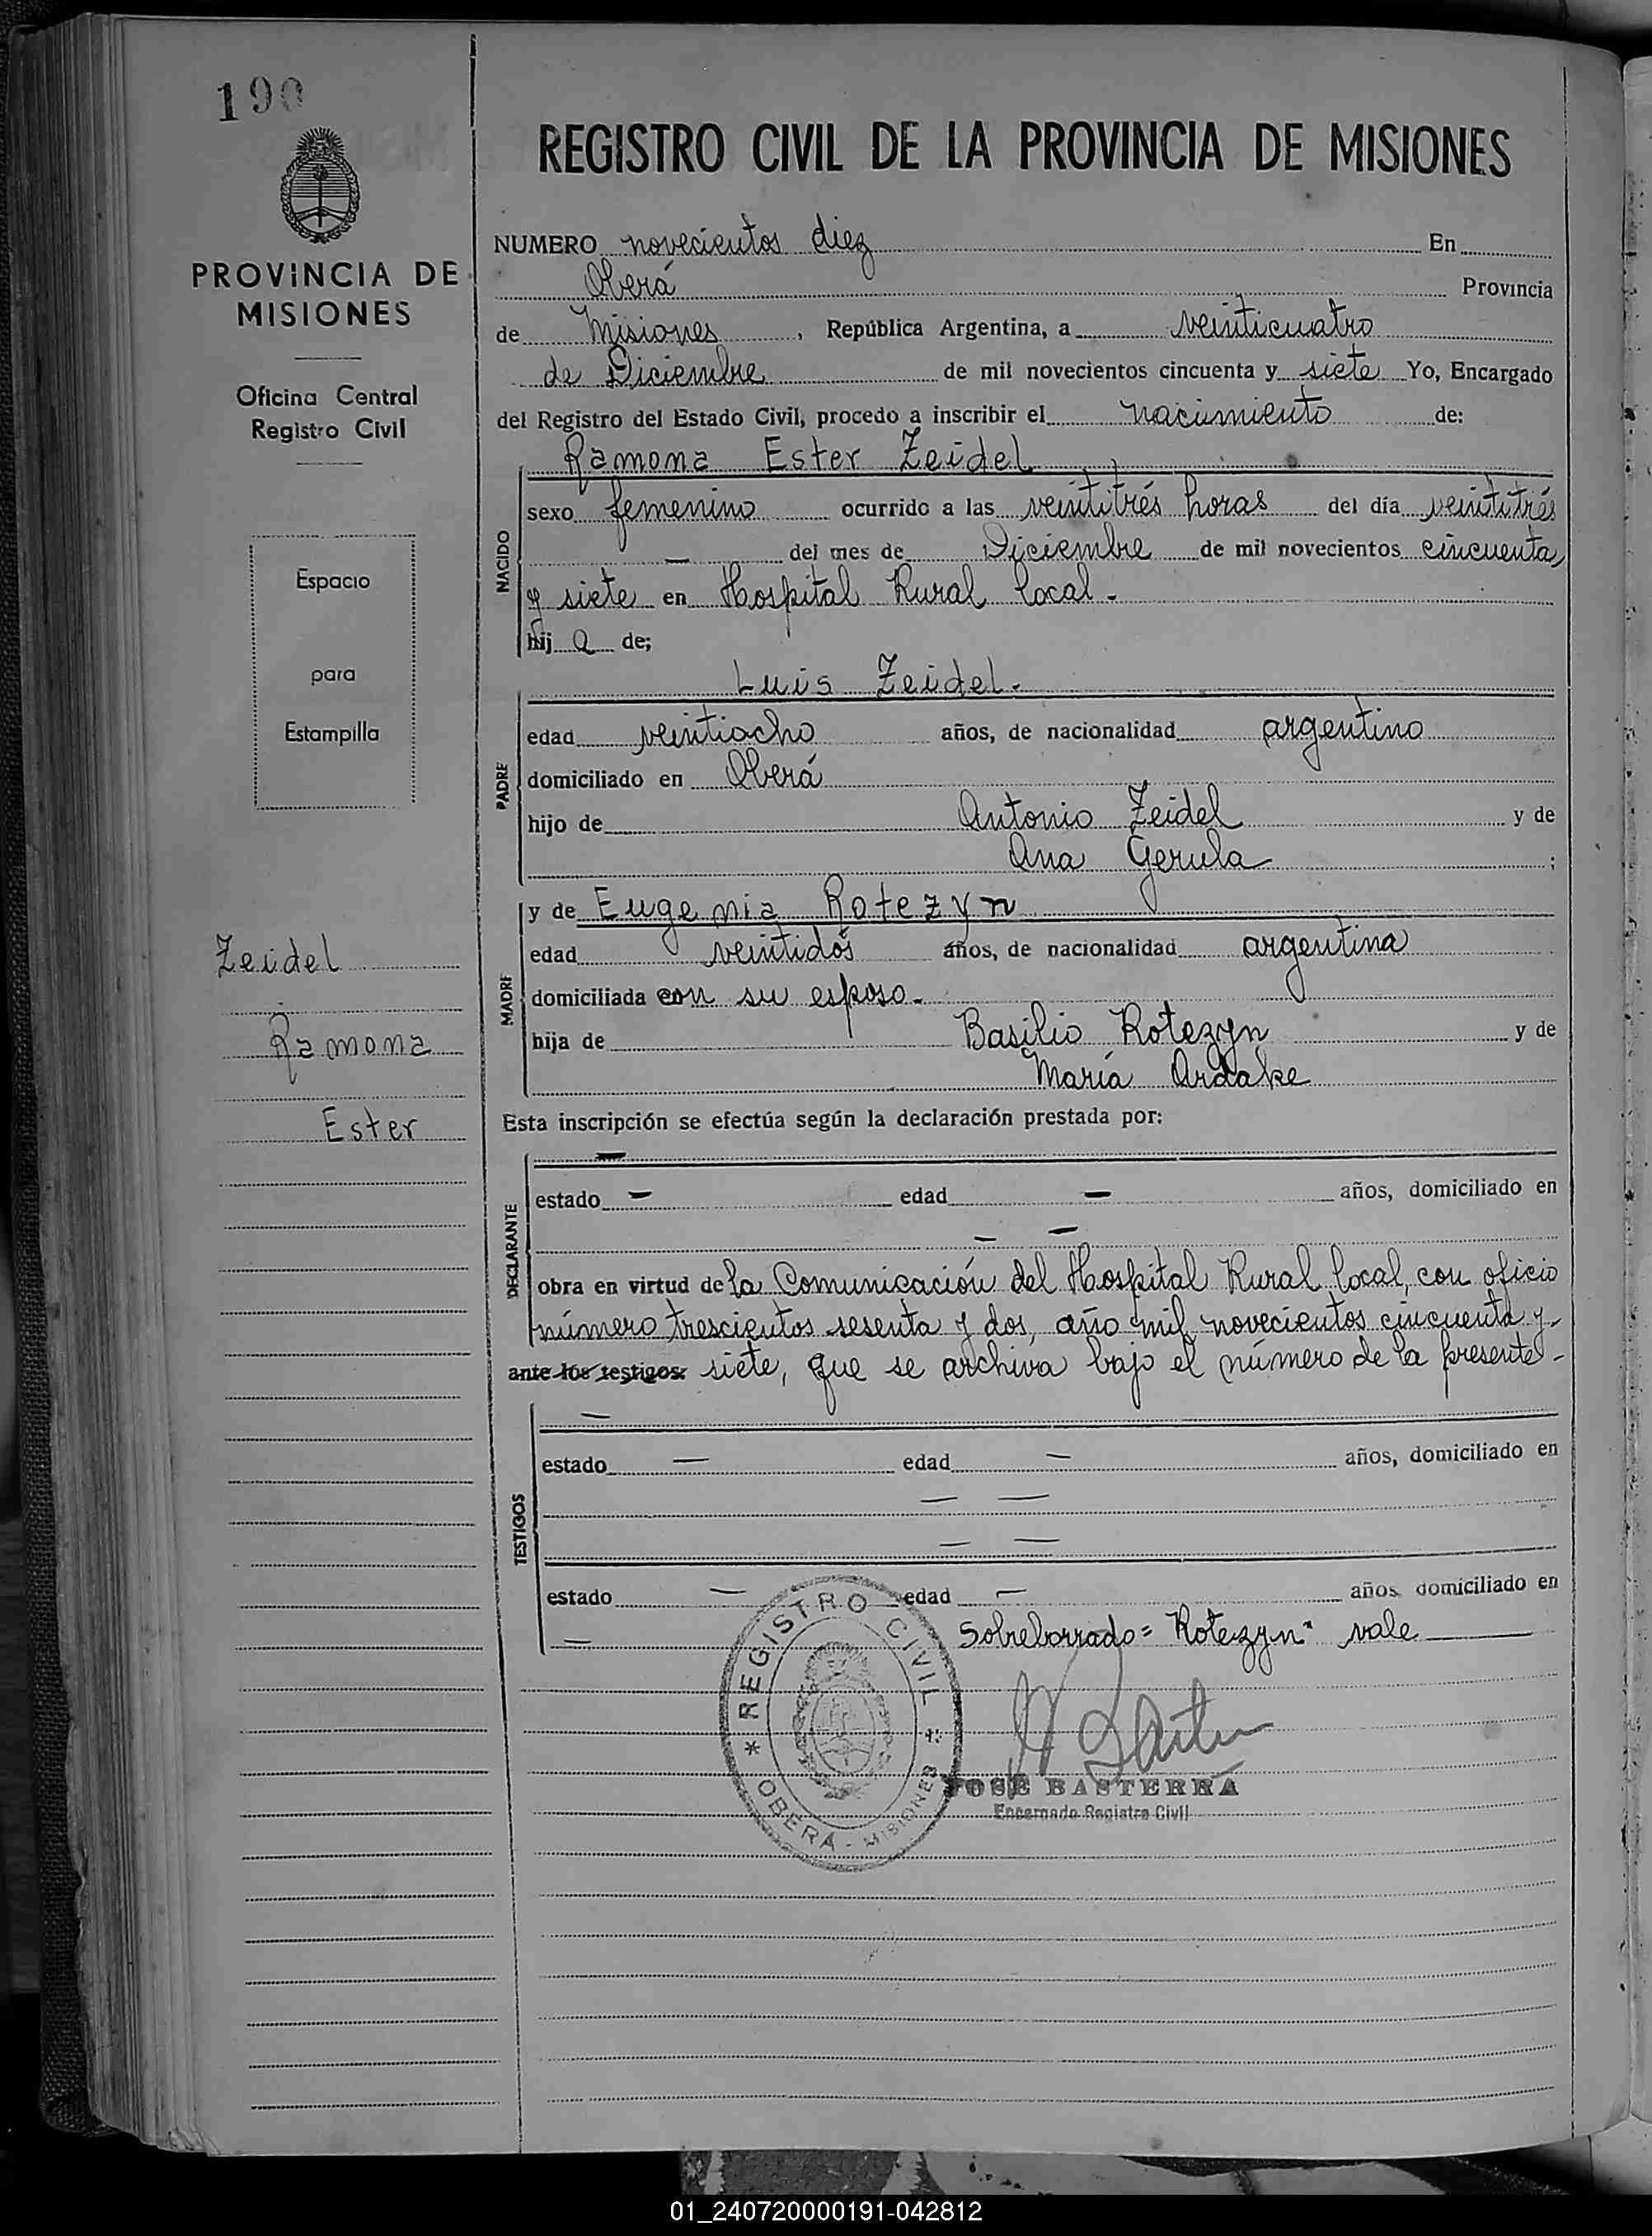 190
PROVINCIA DE
MISIONES
Oficina Central
Registro Civil
Espacio
para
Estampilla
Zeidel
Ramona
Ester
REGISTRO CIVIL DE LA PROVINCIA DE MISIONES
NUMERO novecientos diez En
Oberá Provincia
de Misiones, República Argentina, a veinticuatro
de Diciembre de mil novecientos cincuenta y siete Yo, Encargado
del Registro del Estado Civil, procedo a inscribir el nacimiento de:
Ramona Ester Zeidel
NACIDO
sexo femenino ocurrido a las veintitrés horas del día veintitrés
— del mes de Diciembre de mil novecientos cincuenta
y siete en Hospital Rural local.-
hij a de;
Luis Zeidel.
PADRE
edad veintiocho años, de nacionalidad argentino
domiciliado en Oberá
hijo de Antonio Zeidel y de
Ana Gerula ;
y de Eugenia Rotezyn
MADRE
edad veintidós años, de nacionalidad argentina
domiciliada con su esposo.-
hija de Basilio Rotezyn y de
María Ardake
Esta inscripción se efectúa según la declaración prestada por:
—
DECLARANTE
estado — edad — años, domiciliado en
— —
obra en virtud de la Comunicación del Hospital Rural local, con oficio
número trescientos sesenta y dos, año mil novecientos cincuenta y
ante los testigos: siete, que se archiva bajo el número de la presente.-
—
TESTIGOS
estado — edad — años, domiciliado en
— —
— —
estado — edad — años domiciliado en
— Sobreborrado= "Rotezyn" vale
REGISTRO CIVIL
* OBERÁ - MISIONES *
JOSÉ BASTERRA
Encargado Registro Civil
01_240720000191-042812